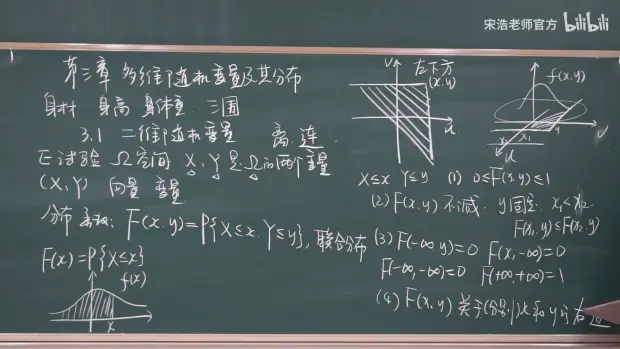 宋浩老师官方 bilibili
第三章 多维随机变量及其分布
身材 身高 身体重 三围
3.1 二维随机变量 离.连.
E试验 Ω空间 X、Y是Ω的两个变量
(X,Y) 向量 变量
分布函数: F(x.y)=P{X≤x. Y≤y}, 联合分布
F(x)=P{X≤x}
f(x)
x
v
左下方
(x.y)
u
f(x.y)
v
u
X≤x Y≤y (1) 0≤F(x.y)≤1
(2) F(x.y) 不减. y固定. x₁<x₂.
F(x₁.y)≤F(x₂.y)
(3) F(-∞ y)=0 F(x,-∞)=0
F(-∞,-∞)=0 F(+∞,+∞)=1
(4) F(x,y) 关于(分别)x和y的右连